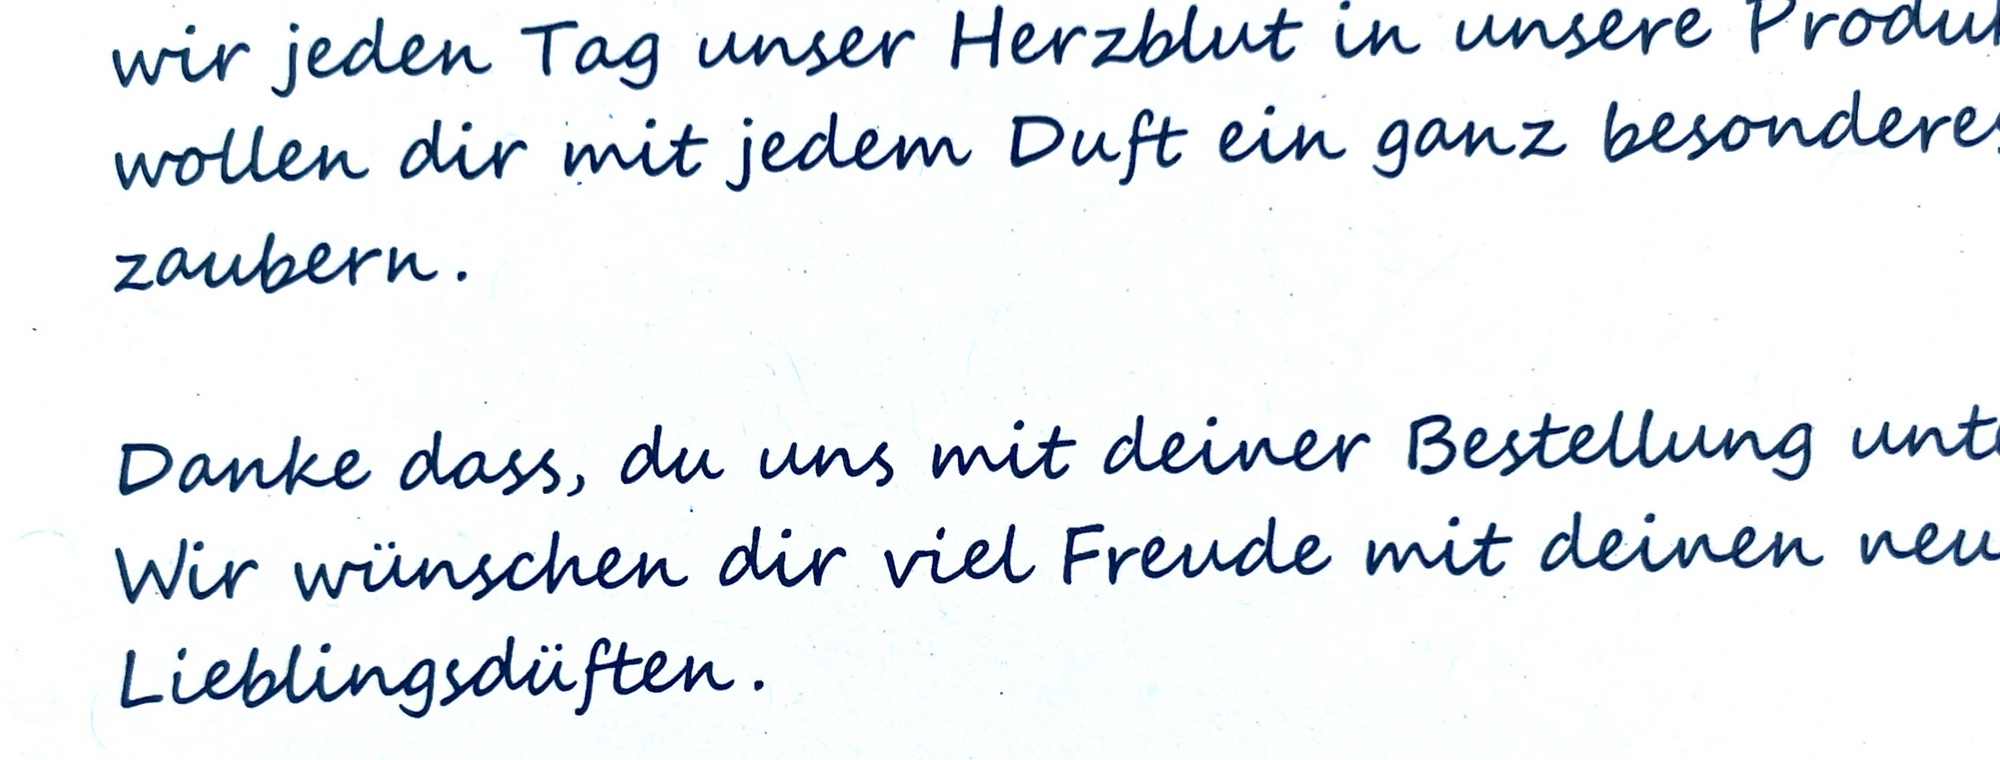 wir jeden Tag unser Herzblut in unsere
wollen dir mit jedem Duft ein ganz besonderes
zaubern.
Danke dass, du uns mit deiner Bestellung
Wir wünschen dir viel Freude mit deinen
Lieblingsdüften.